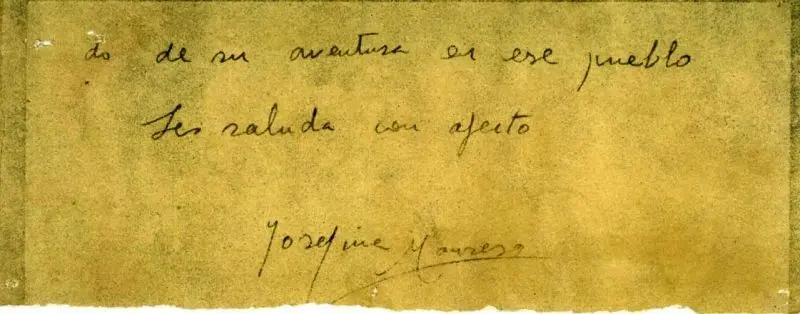 do de su aventura en ese pueblo
Les saluda con afecto
Josefina Manresa